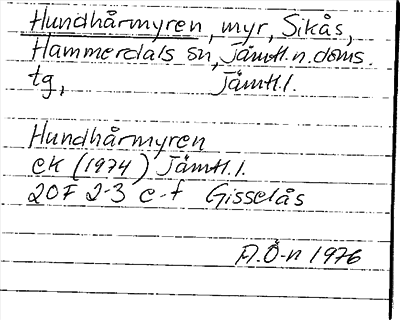 Hundhårmyren, myr, Sikås,
Hammerdals sn, Jämtl. n. doms.
tg, Jämtl. l.
Hundhårmyren
ek (1974) Jämtl. l.
20F 2-3 e-f Gisselås
A.Ö-n 1976